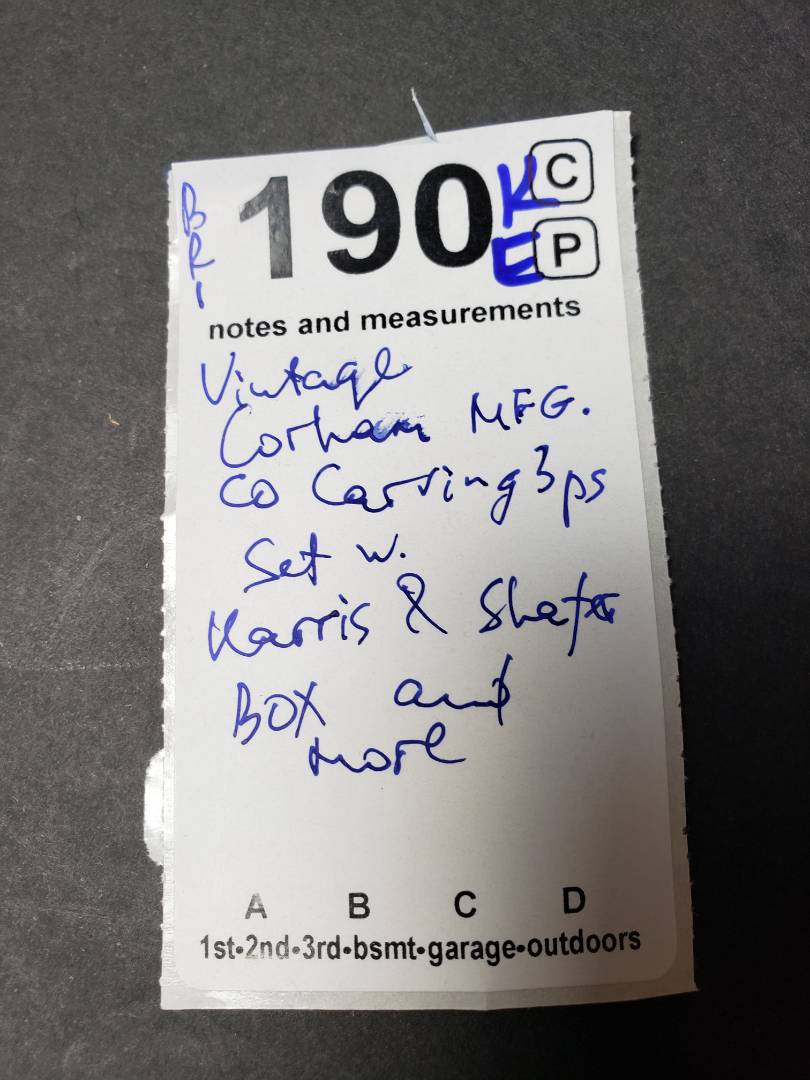 BRI
190 K C
E P
notes and measurements
Vintage
Gorham MFG.
CO Carving 3ps
Set w.
Harris & Shafer
BOX and
more
A B C D
1st•2nd•3rd•bsmt•garage•outdoors